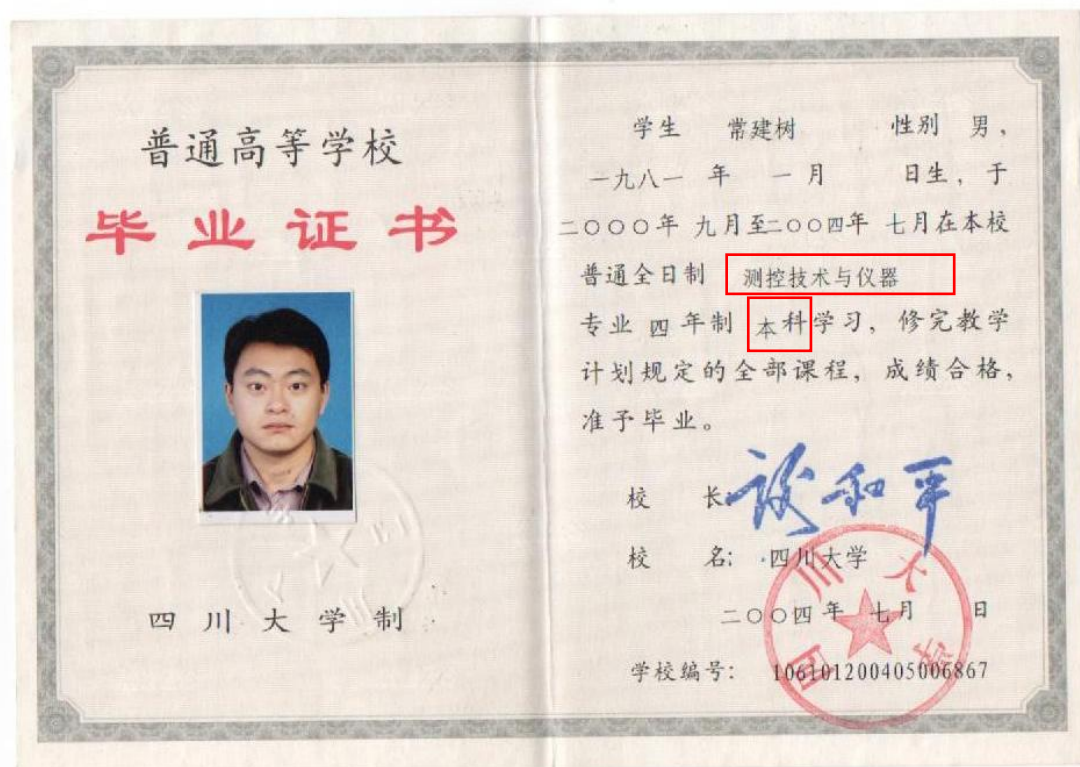 普通高等学校
毕业证书
四川大学制
学生 常建树 性别 男，
一九八一 年 一 月 日生，于
二〇〇〇年 九月至二〇〇四年 七月在本校
普通全日制 测控技术与仪器
专业 四 年制 本科学习，修完教学
计划规定的全部课程，成绩合格，
准予毕业。
校 长
校 名: 四川大学
二〇〇四 年 七月 日
学校编号: 106101200405006867
四川大学